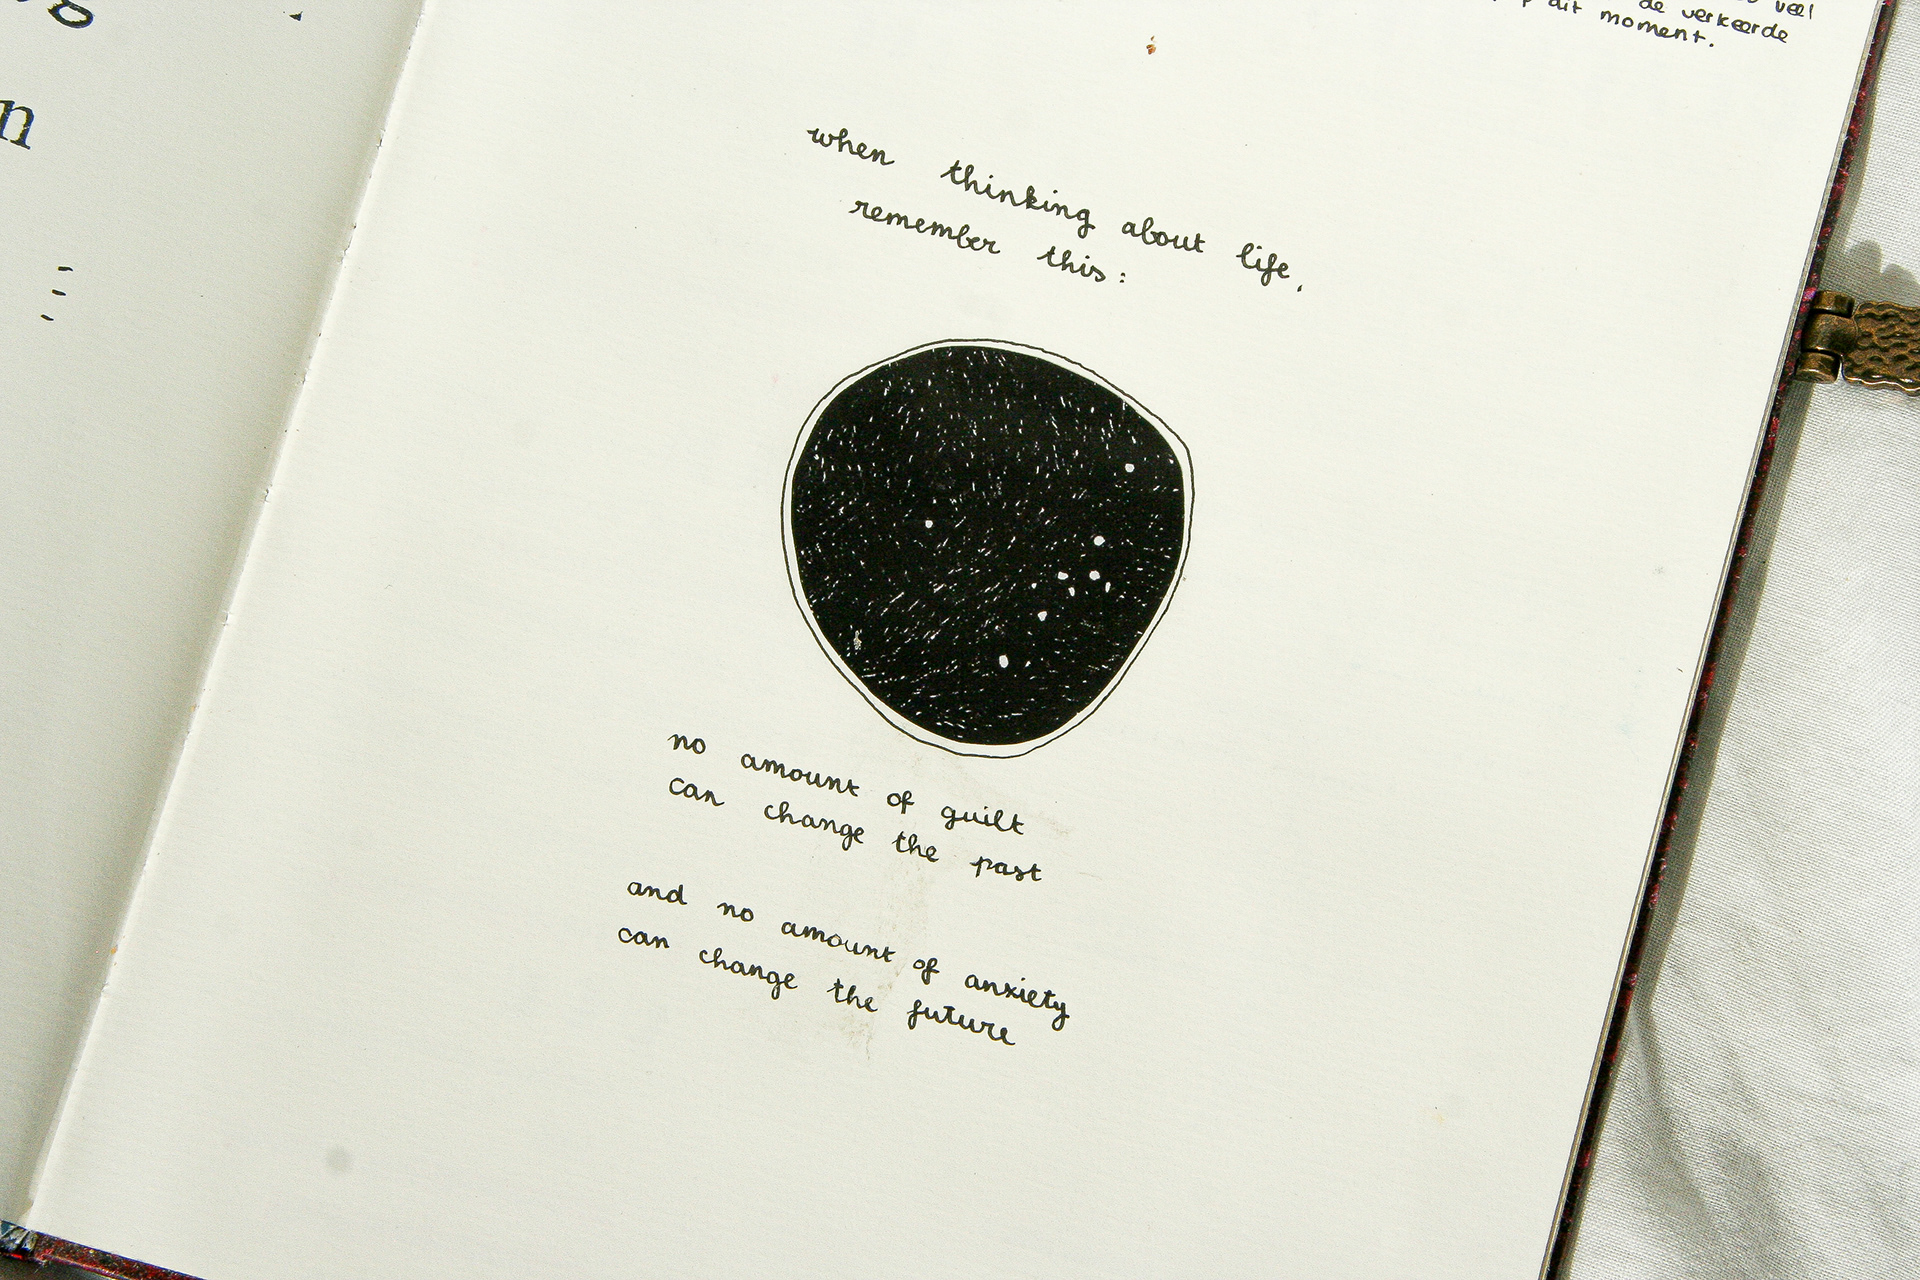 g
n
veel
dit de verkeerde
moment.
when thinking about life,
remember this:
no amount of guilt
can change the past
and no amount of anxiety
can change the future